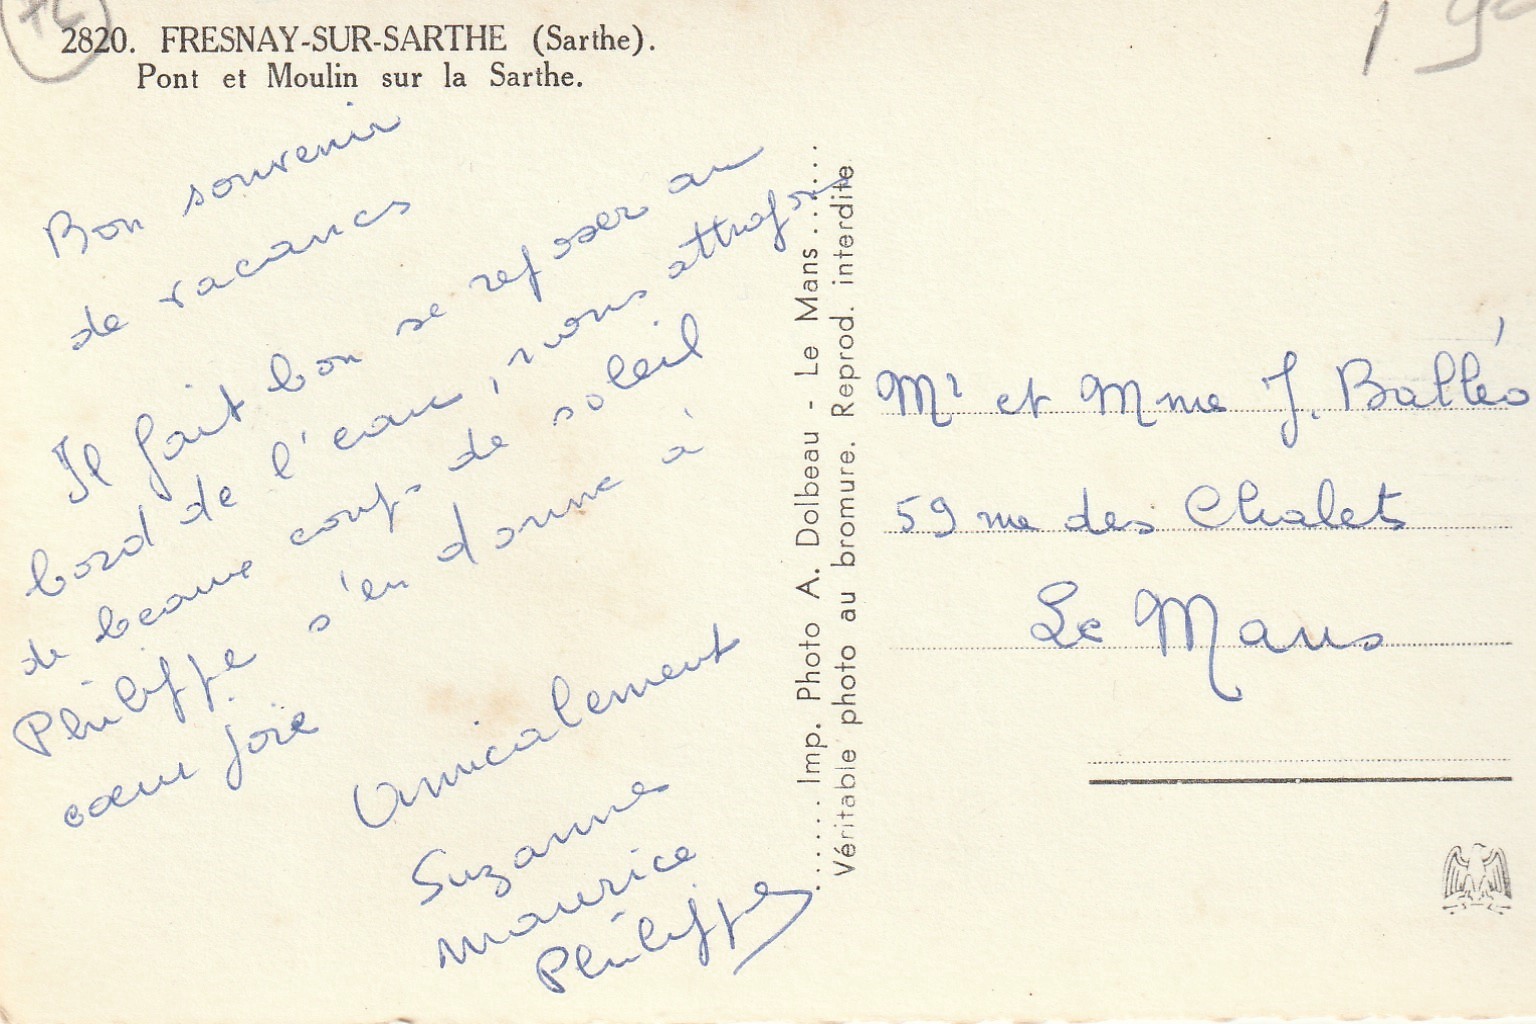 2820. FRESNAY-SUR-SARTHE (Sarthe).
Pont et Moulin sur la Sarthe.
Bon souvenir
de vacances
Il fait bon se reposer au
bord de l'eau, nous attrapons
de beaux coups de soleil
Philippe s'en donne à
cœur joie
Amicalement
Suzanne
Maurice
Philippe
...... Imp. Photo A. Dolbeau - Le Mans ......
Véritable photo au bromure. Reprod. interdite
Mr et Mme J. Balléo
59 rue des Chalets
Le Mans